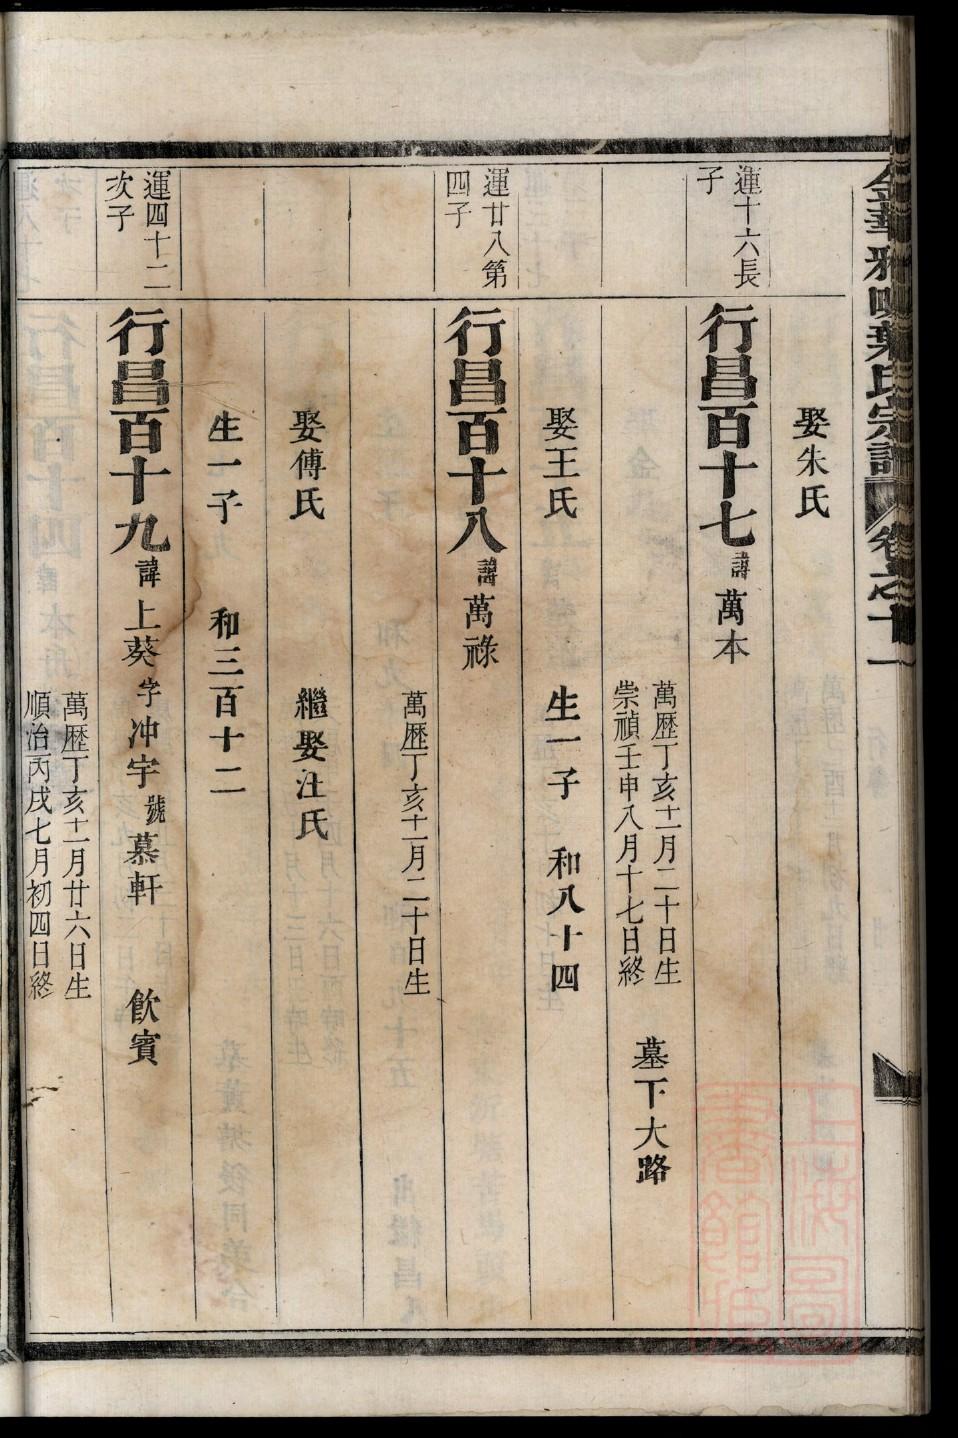 娶朱氏
運十六長子
行昌百十七諱萬本
萬歷丁亥十一月二十日生
崇禎壬申八月十七日終
墓下大路
娶王氏
生一子
和八十四
運廿八第四子
行昌百十八諱萬祿
萬歷丁亥十一月二十日生
娶傅氏
繼娶汪氏
生一子
和三百十二
運四十二次子
行昌百十九諱上葵字冲宇號慕軒
飲賓
萬歷丁亥十一月廿六日生
順治丙戌七月初四日終